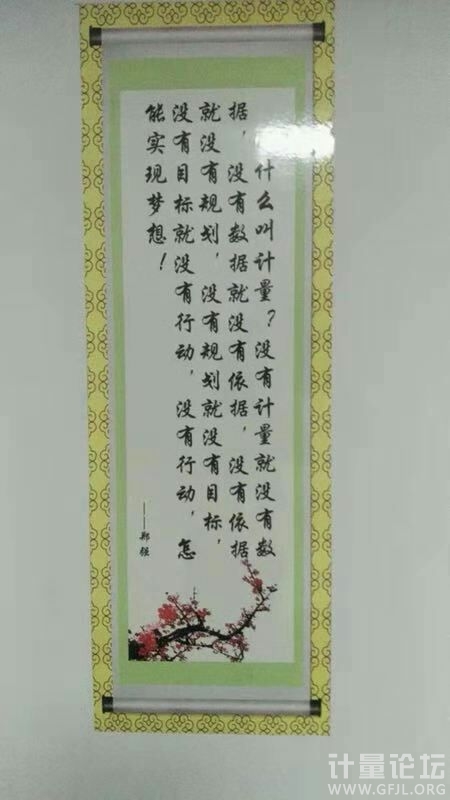 什么叫计量？没有计量就没有数
据，没有数据就没有依据，没有依据
就没有规划，没有规划就没有目标，
没有目标就没有行动，没有行动，怎
能实现梦想！
——郑强
计量论坛
WWW.GFJL.ORG